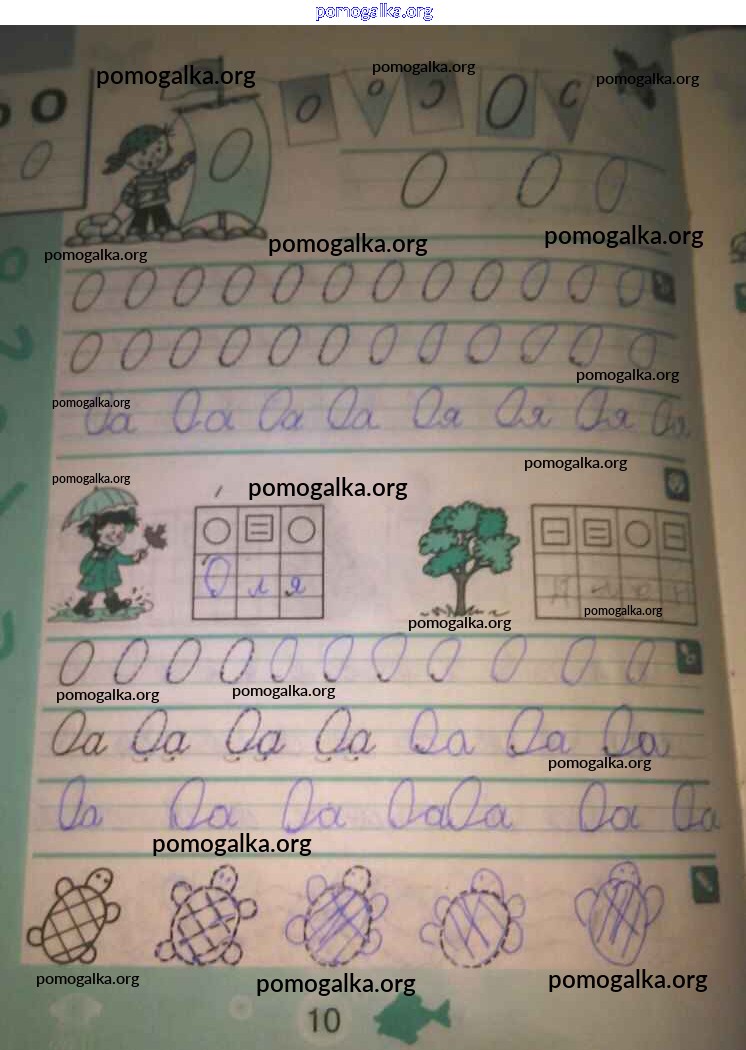 pomogalka.org
pomogalka.org pomogalka.org pomogalka.org
О О
О О О о Э О С
О О О
pomogalka.org pomogalka.org pomogalka.org
О О О О О О О О О О О О
О О О О О О О О О О О О
pomogalka.org
pomogalka.org
Оа Оа Оа Оа Оя Оя Оя Оя
pomogalka.org
pomogalka.org pomogalka.org
Оля
pomogalka.org
pomogalka.org
О О О О О О О О О О О
pomogalka.org pomogalka.org
Оа Оа Оа Оа Оа Оа Оа
pomogalka.org
Оа Оа Оа Оа Оа Оа Оа
pomogalka.org
pomogalka.org pomogalka.org pomogalka.org
10